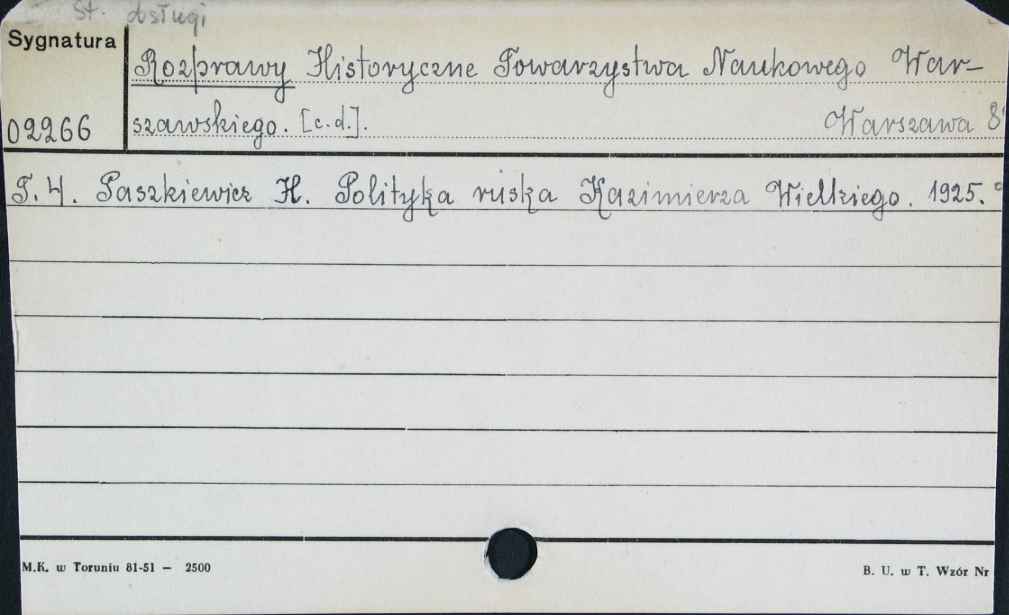 St. dsługi
Sygnatura
Rozprawy Historyczne Towarzystwa Naukowego War-
02266 szawskiego. [c.d.]. Warszawa 8°
T. 4. Paszkiewicz H. Polityka ruska Kazimierza Wielkiego. 1925.
M.K. w Toruniu 81-51 — 2500
B. U. w T. Wzór Nr